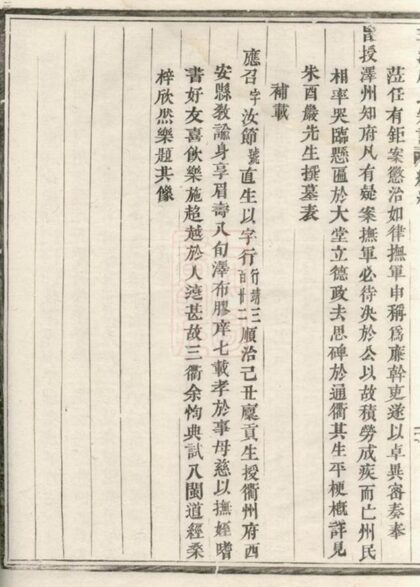 蒞任有鉅案懲治如律撫軍申稱為廉幹吏遂以卓異審奏奉
旨授澤州知府凡有疑案撫軍必待決於公以故積勞成疾而亡州民
相率哭臨懸匾於大堂立德政去思碑於通衢其生平梗概詳見
朱酉嚴先生撰墓表
補載
應召字汝節號直生以字行行靖三百廿二順治己丑廩貢生授衢州府西
安縣教諭身享眉壽八旬澤布膠庠七載孝於事母慈以撫姪嗜
書好友喜飲樂施超越於人遠甚故三衢余恂典試八閩道經桑
梓欣然樂題其像